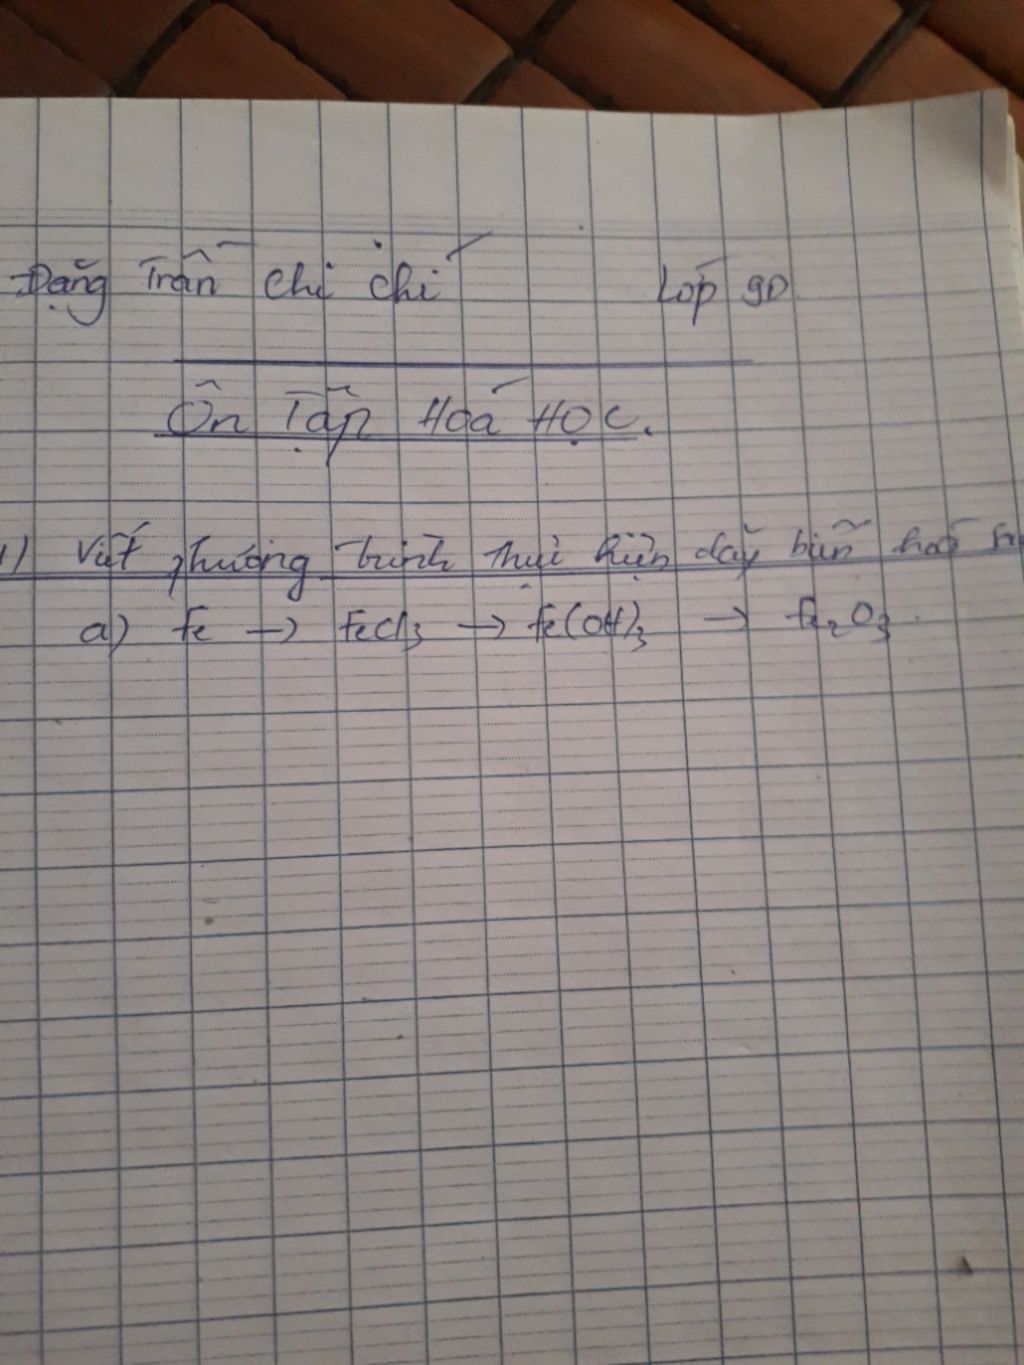 Đặng Trần Chi Chi Lớp 9D
Ôn Tập Hoá Học.
1) Viết phương trình thực hiện dãy biến hoá
a) Fe → FeCl3 → Fe(OH)3 → Fe2O3.